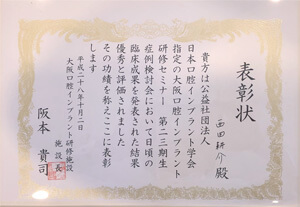 表彰状
西田耕介殿
貴方は公益社団法人
日本口腔インプラント学会
指定の大阪口腔インプラント
研修セミナー第二三期生
症例検討会において日頃の
臨床成果を発表された結果
優秀と評価されました
その功績を称えここに表彰
します
平成二十八年十月二日
大阪口腔インプラント研修施設
施設長
阪本貴司